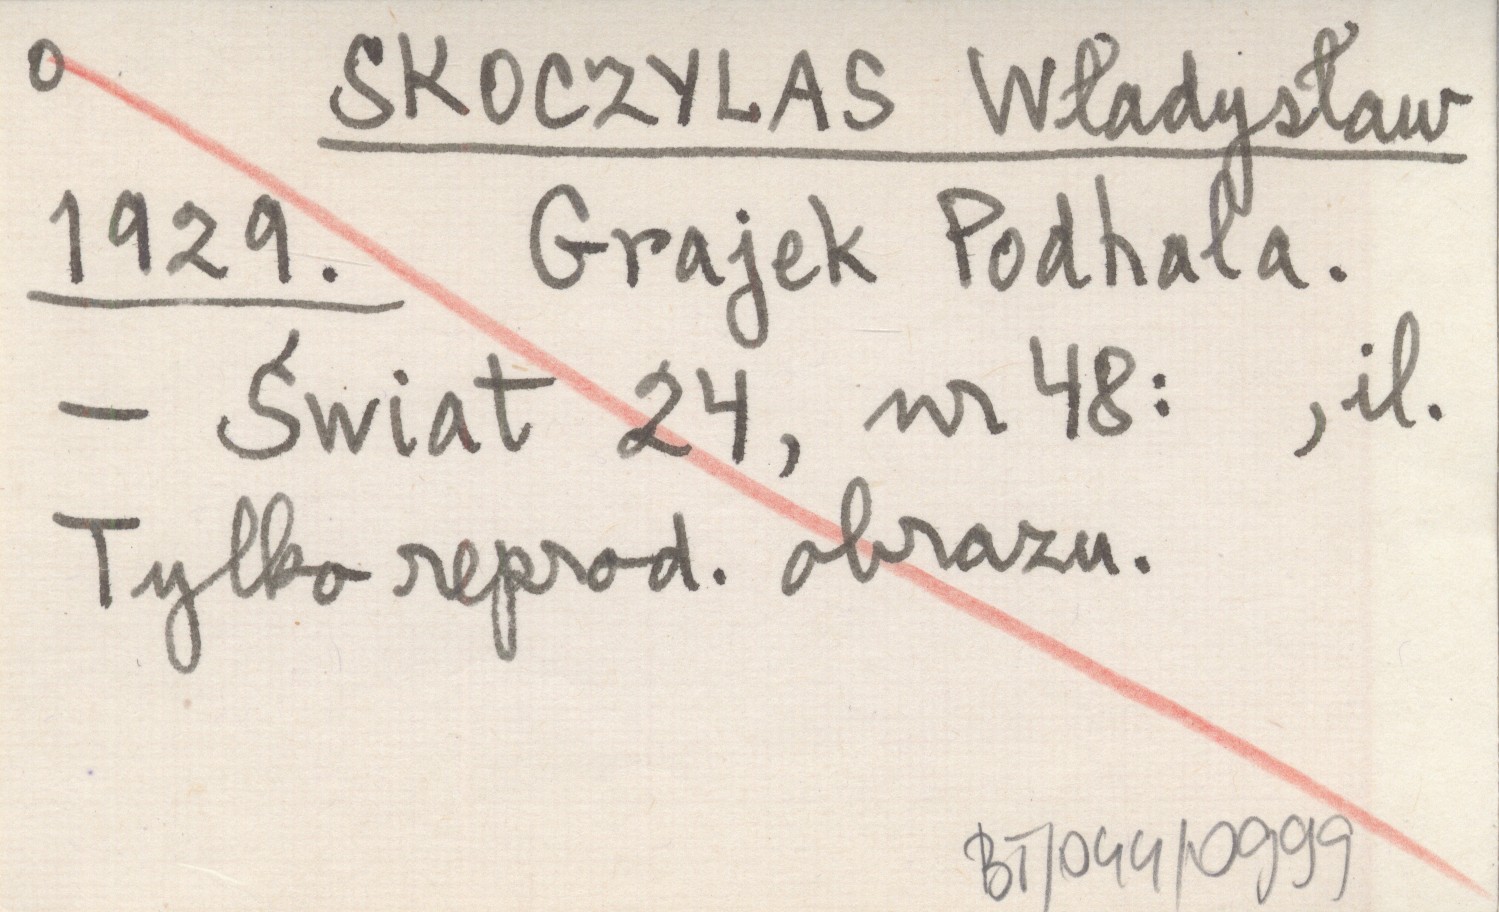 o SKOCZYLAS Władysław
1929. Grajek Podhala.
– Świat 24, nr 48: , il.
Tylko reprod. obrazu.
BT/044/0999